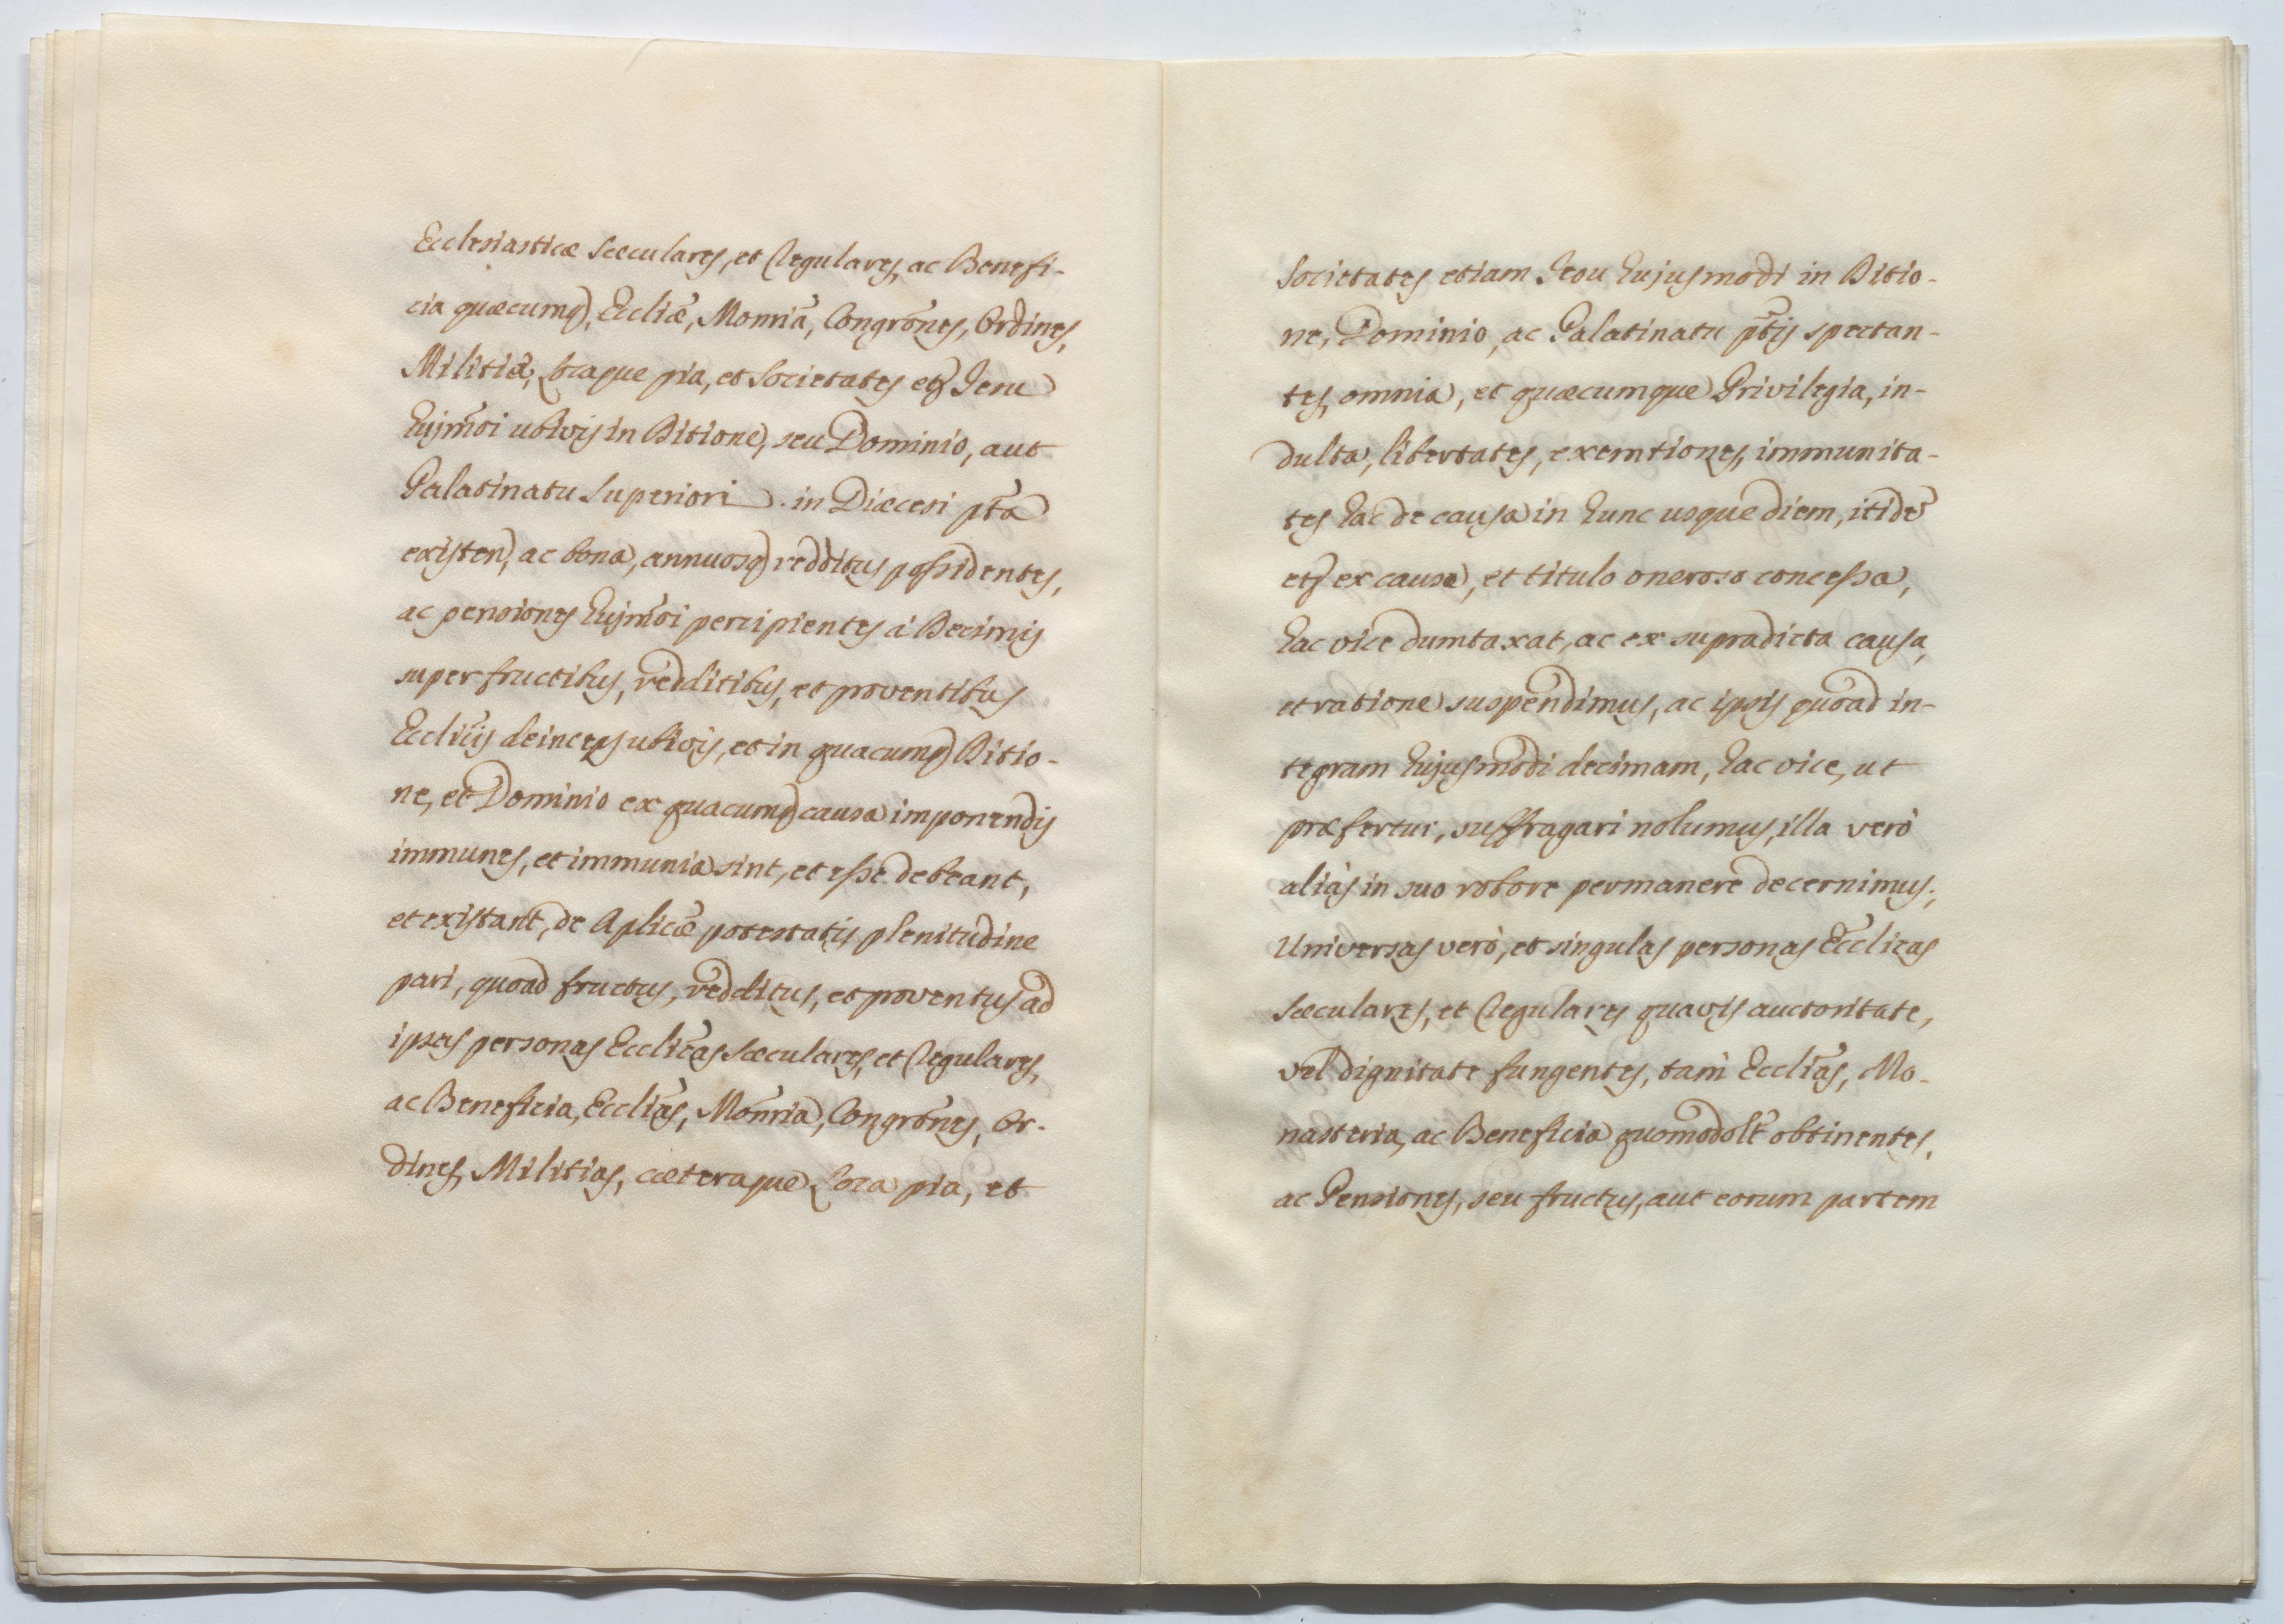 Ecclesiasticæ Sæculares, et Regulares, ac Benefi-
cia quæcumq, Eccliæ, Monria, Congrones, Ordines,
Militiæ, Locaque pia, et Societates etz Jesu
hujmoi ubivis in Ditione, seu Dominio, aut
Palatinatu Superiori in Diæcesi pta
existen, ac bona, annuosq redditus possidentes,
ac pensiones hujmoi percipientes á Decimis
super fructibus, redditibus, et proventibus
Eccliis deinceps ubivis, et in quacumq Ditio-
ne, et Dominio ex quacumq causa imponendis
immunes, et immunia sint, et esse debeant,
et existant, de Aplicæ potestatis plenitudine
pari, quoad fructus, redditus, et proventus ad
ipsas personas Ecclicas Sæculares, et Regulares,
ac Beneficia, Ecclias, Monria, Congrones, Or-
dines, Militias, cæteraque Loca pia, et
Societates etiam Jesu hujusmodi in Ditio-
ne, Dominio, ac Palatinatu ptis spectan-
tes, omnia, et quæcumque Privilegia, in-
dulta, libertates, exemtiones, immunita-
tes hac de causa in hunc usque diem, itide
etz ex causa, et titulo oneroso concessa,
hac vice dumtaxat, ac ex supradicta causa,
et ratione suspendimus, ac ipsis quoad in-
tegram hujusmodi decimam, hac vice, ut
præfertur, suffragari nolumus, illa verò
aliàs in suo robore permanere decernimus;
Universas verò, et singulas personas Ecclicas
Sæculares, et Regulares quavis auctoritate,
vel dignitate fungentes, tam Ecclias, Mo-
nasteria, ac Beneficia quomodolt obtinentes,
ac Pensiones, seu fructus, aut eorum partem